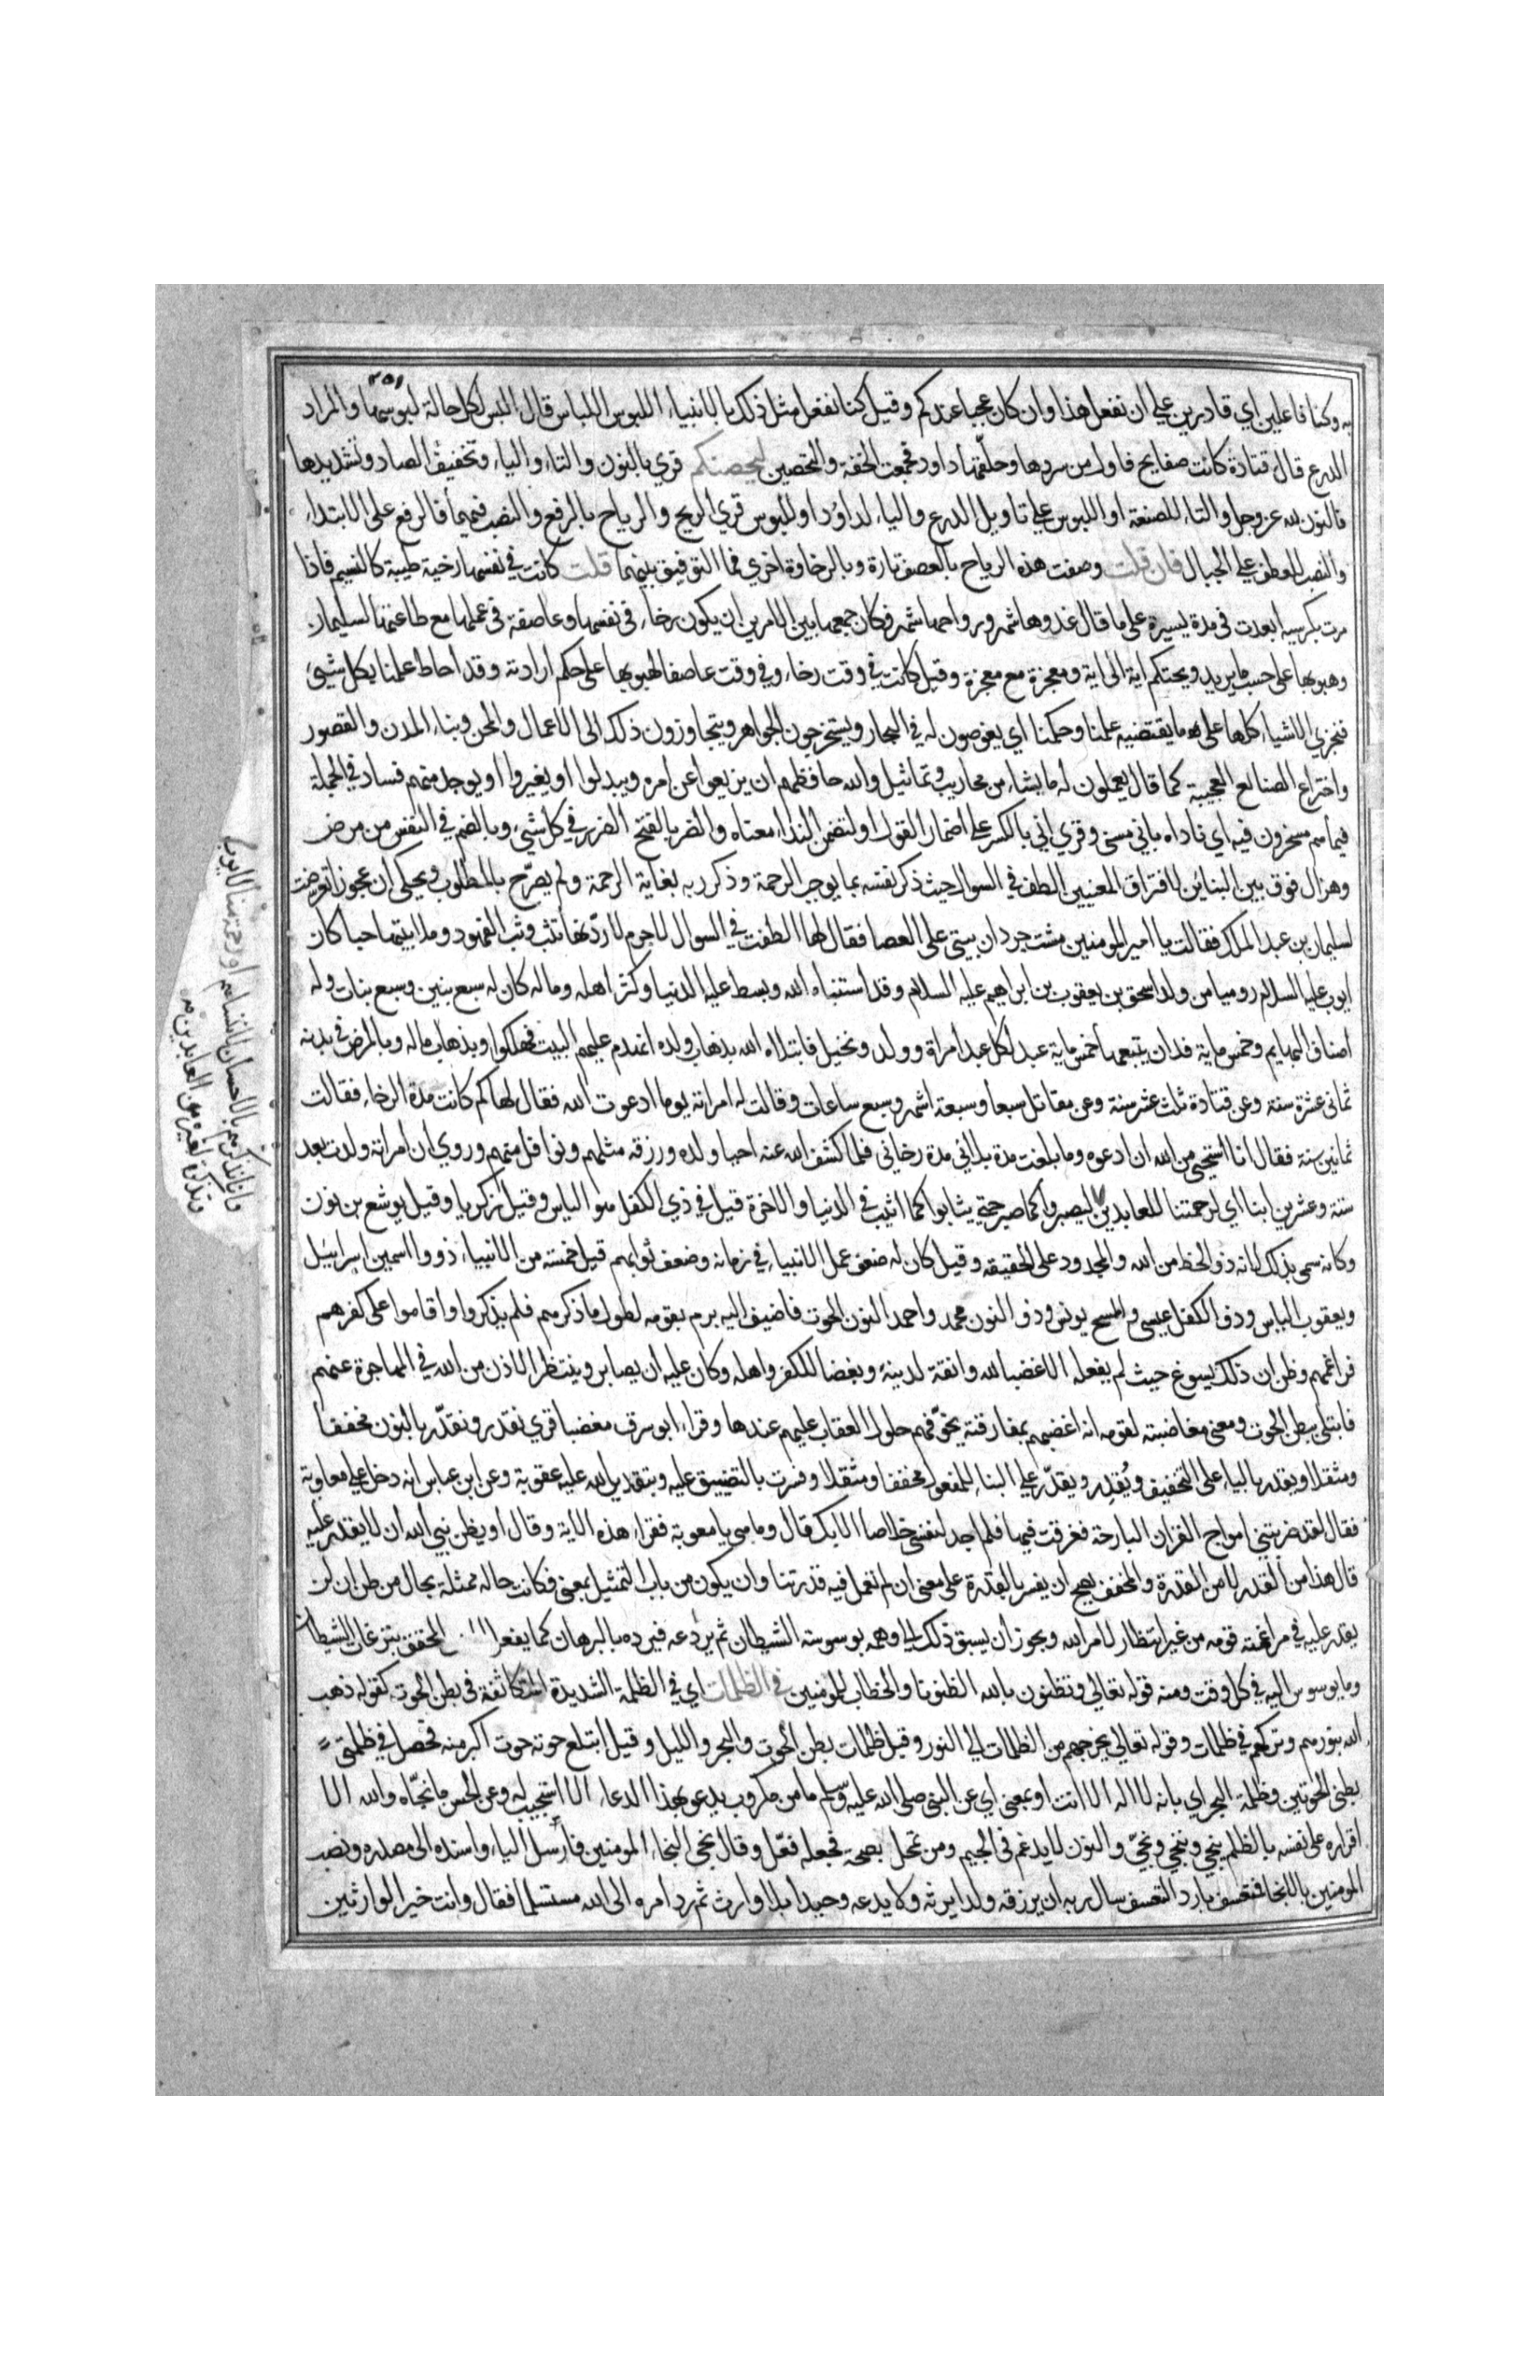 به وكنا فاعلين اي قادرين علي ان نفعل هذا وان كان عجبا عندكم وقيل كنا نفعل مثل ذلك بالانبياء اللبوس اللباس قال البس لكل حالة لبوسها والمراد
الدرع قال قتادة كانت صفايح فاول من سردها وحلقها داود فجمعت الخفة والتحصين لتحصنكم قري بالنون والتاء والياء وتخفيف الصاد وتشديدها
فالنون لله عز وجل والتاء للصنعة او اللبوس علي تاويل الدرع والياء لداود او للبوس قري الريح والرياح بالرفع والنصب فيهما فالرفع علي الابتداء
والنصب للعطف علي الجبال فان قلت وصفت هذه الرياح بالعصف تارة وبالرخاوة اخري فما التوفيق بينهما قلت كانت في نفسها رخية طيبة كالنسيم فاذا
مرت بكرسيه ابعدت في مدة يسيرة علي ما قال غدوها شهر ورواحها شهر فكان جمعها بين الامرين ان يكون رخاء في نفسها وعاصفة في عملها مع طاعتها لسليمان
وهبوبها علي حسب ما يريد ويحتكم اية الي اية ومعجزة مع معجزة وقيل كانت في وقت رخاء وفي وقت عاصفا لهبوبها علي حكم ارادته وقد احاط علمنا بكل شيئ
فنجزي الاشياء كلها علي ما يقتضيه علمنا وحكمنا اي يغوصون له في البحار ويستخرجون الجواهر ويتجاوزون ذلك الي الاعمال والمحن وبناء المدن والقصور
واختراع الصنائع العجيبة كما قال يعملون له ما يشاء من محاريب وتماثيل والله حافظهم ان يزيغوا عن امره ويبدلوا او يغيروا او يوجد منهم فساد في الجملة
فيما هم مسخرون فيه اي ناداه باني مسني وقري اني بالكسر علي اضمار القول او لتضمن النداء معناه والضر بالفتح الضرر في كل شيئ وبالضم في النفس من مرض
وهزال فرق بين البنائين لافتراق المعنيين الطف في السوال حيث ذكر نفسه بما يوجب الرحمة وذكر ربه بغاية الرحمة ولم يصرح بالمطلوب ويحكي ان عجوزا تعرضت
لسليمان بن عبد الملك فقالت يا امير المومنين مشت جرذان بيتي علي العصا فقال لها الطفت في السوال لاجرم لاردنها تثب وثب الفهود وملا بيتها حبا كان
ايوب عليه السلام روميا من ولد اسحق بن يعقوب بن ابراهيم عليه السلام وقد استنباه الله وبسط عليه الدنيا وكثر اهله وماله كان له سبع بنين وسبع بنات وله
اصناف البهايم وخمس ماية فدان يتبعها خمس ماية عبد لكل عبد امراة وولد ونخيل فابتلاه الله بذهاب ولده انهدم عليهم البيت فهلكوا وبذهاب ماله وبالمرض في بدنه
ثماني عشرة سنة وعن قتادة ثلث عشر سنة وعن مقاتل سبعا وسبعة اشهر وسبع ساعات وقالت له امراته يوما ادعوت الله فقال لها كم كانت مدة الرخاء فقالت
ثمانين سنة فقال انا استحيي من الله ان ادعوه وما بلغت مدة بلائي مدة رخائي فلما كشف الله عنه احيا ولده ورزقه مثلهم ونوافل منهم وروي ان امراته ولدت بعد
ستة وعشرين ابنا اي لرحمتنا للعابدين ليصبروا كما صبر حتي يثابوا كما اثيب في الدنيا والاخرة قيل في ذي الكفل هو الياس وقيل زكريا وقيل يوشع بن نون
وكانه سمي بذلك لانه ذو الحظ من الله والمجدود علي الحقيقه وقيل كان له ضعف عمل الانبياء في زمانه وضعف ثوابهم قيل خمسة من الانبياء ذووا اسمين اسراييل
ويعقوب الياس وذو الكفل عيسي والمسيح يونس وذو النون محمد واحمد النون الحوت فاضيف اليه برم بقومه لطول ما ذكرهم فلم يذكروا واقاموا علي كفرهم
فراغمهم وظن ان ذلك يسوغ حيث لم يفعله الا غضبا لله وانفة لدينه وبغضا للكفر واهله وكان عليه ان يصابر وينتظر الاذن من الله في المهاجرة عنهم
فابتلي ببطن الحوت ومعني مغاضبته لقومه انه اغضبهم بمفارقته بخوفهم حلول العقاب عليهم عندها وقراء ابو سرف مغضبا قري نقدر ونقدّر بالنون مخففا
ومثقلا ويقدر بالياء علي التخفيف ويُقدِر ويقدّر علي البناء للمفعول مخففا ومثقلا وفسرت بالتضييق عليه وبتقدير الله عليه عقوبة وعن ابن عباس انه دخل علي معاوية
فقال لقد ضربتني امواج القران البارحة فغرقت فيها فلم اجد لنفسي خلاصا الا بك قال وما هي يا معوية فقراء هذه الاية وقال او يظن نبي الله ان لا يقدر عليه
قال هذا من القدر لا من القدرة والمخفف يصح ان يفسر بالقدرة علي معني ان لم نعمل فيه قدرتنا وان يكون من باب التمثيل بمعني فكانت حاله ممثلة بحال من ظن ان لن
يقدر عليه في مراغمته قومه من غير انتظار لامر الله ويجوز ان يسبق ذلك الي وهمه بوسوسة الشيطان ثم يردعه فيرده بالبرهان كما يفعل المحقق بنزغات الشيطان
وما يوسوس اليه في كل وقت ومنه قوله تعالي وتظنون بالله الظنونا والخطاب للمومنين في الظلمات اي في الظلمة الشديدة المتكاثفة في بطن الحوت كقوله ذهب
الله بنورهم وتركهم في ظلمات وقوله تعالي يخرجهم من الظلمات الي النور وقيل ظلمات بطن الحوت والبحر والليل وقيل ابتلع حوته حوت اكبر منه فحصل في ظلمتي
بطني الحوتين وظلمة البحر اي بانه لا اله الا انت او بمعني اي عن النبي صلي الله عليه وسلم ما من مكروب يدعو بهذا الدعاء الا استجيب له وعن الحسن ما نجّاه والله الا
اقراره علي نفسه بالظلم ينجي وننجي ونجّي والنون لا يدغم في الجيم ومن تمحل بصحته فجعله فعّل وقال نجي النجاء المومنين فارسل الياء واسنده الي مصدره ونصب
المومنين بالنجا فتعسف بارد التعسف سال ربه ان يرزقه ولدا يرثه ولا يدعه وحيدا بلا وارث ثم رد امره الي الله مستسلما فقال وانت خير الوارثين
او رحمة منا لايوب
وانا نذكرهم بالاحسان لا ننساهم
وتذكرة لغيره من العابدين منه